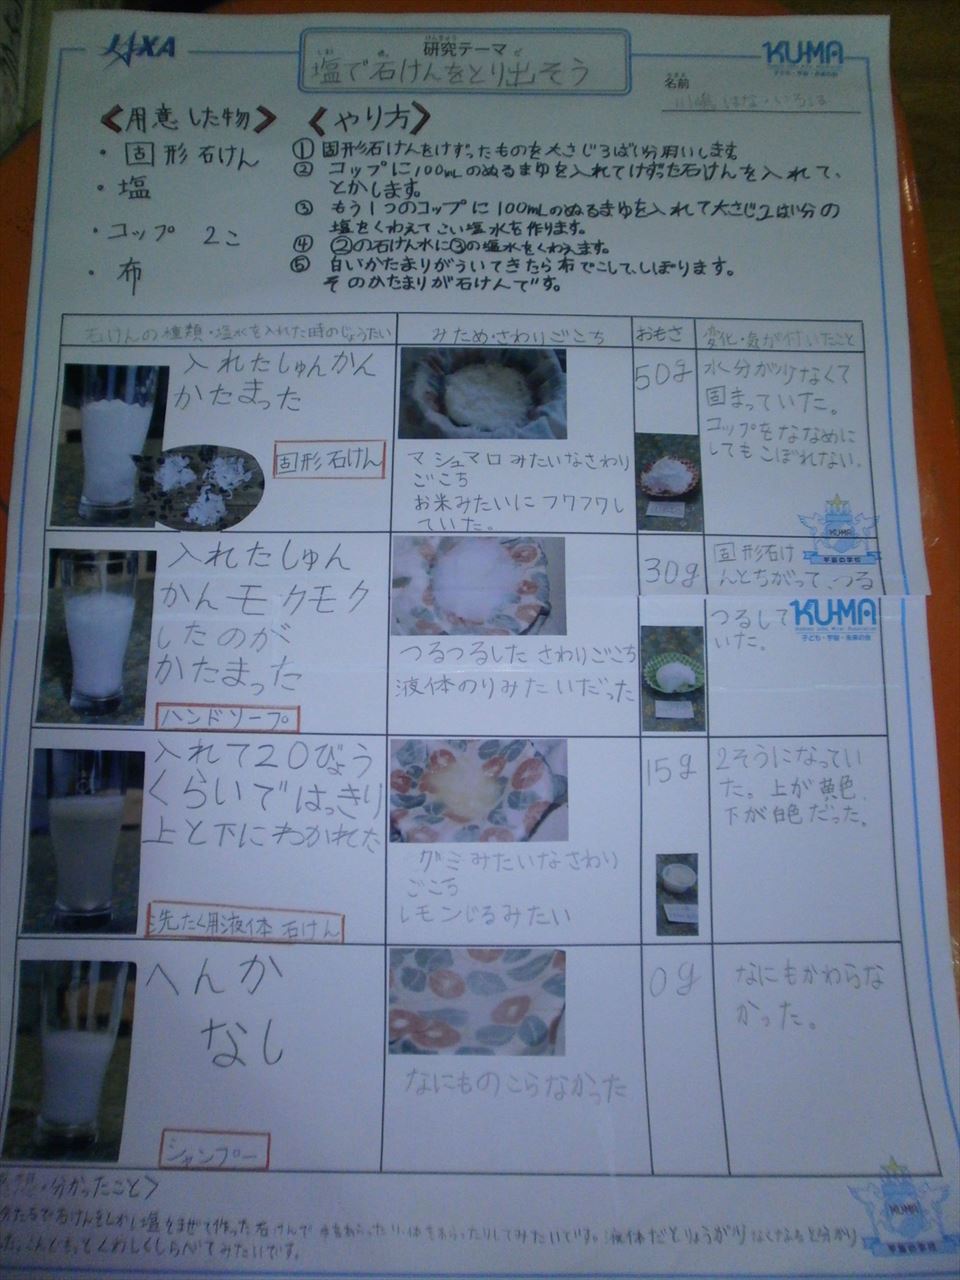 JAXA
研究テーマ
けんきゅう
塩で石けんをとり出そう
しお
KU-MA
子ども・宇宙・未来の会
名前
なまえ
＜用意した物＞
・固形石けん
・塩
・コップ 2こ
・布
＜やり方＞
①固形石けんをけずったものを大さじ3ばい分用いします。
②コップに100mLのぬるまゆを入れてけずった石けんを入れて、
とかします。
③もう1つのコップに100mLのぬるまゆを入れて大さじ2はい分の
塩をくわえてこい塩水を作ります。
④②の石けん水に③の塩水をくわえます。
⑤白いかたまりがういてきたら布でこして、しぼります。
そのかたまりが石けんです。
石けんの種類・塩水を入れた時のじょうたい
みため・さわりごこち
おもさ
変化・気が付いたこと
入れたしゅんかん
かたまった
固形石けん
マシュマロみたいなさわり
ごこち
お米みたいにフワフワし
ていた。
50g
水分が少なくて
固まっていた。
コップをななめに
してもこぼれない。
KU-MA
宇宙の学校
入れたしゅん
かんモクモク
したのが
かたまった
ハンドソープ
つるつるしたさわりごこち
液体のりみたいだった
30g
固形石け
んとちがって、つる
つるして
いた。
KU-MA
子ども・宇宙・未来の会
入れて20びょう
くらいではっきり
上と下にわかれた
洗たく用液体石けん
グミみたいなさわり
ごこち
レモンじるみたい
15g
2そうになってい
た。上が黄色、
下が白色だった。
へんか
なし
シャンプー
なにものこらなかった
0g
なにもかわらな
かった。
・分かったこと＞
石けんをとかし塩をまぜて作った石けんで手をあらったり、体をあらったりしてみたいです。液体だとりょうが少なくなると分かり
くわしくしらべてみたいです。
KU-MA
宇宙の学校